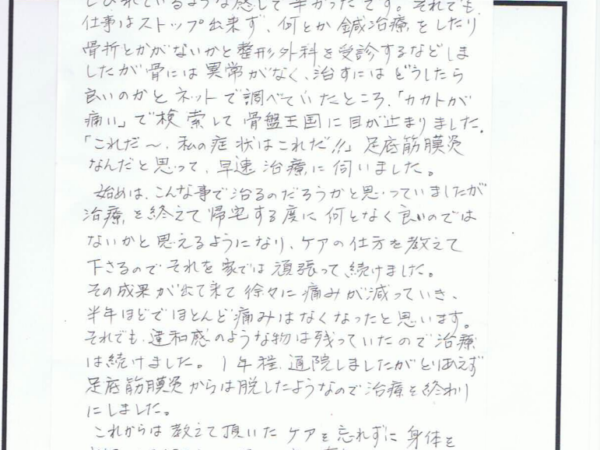 しびれているような感じで辛かったです。それでも
仕事はストップ出来ず、何とか鍼治療をしたり
骨折とかがないかと整形外科を受診するなどしま
したが骨には異常がなく、治すにはどうしたら
良いのかとネットで調べていたところ、「カカトが
痛い」で検索して骨盤王国に目が止まりました。
「これだ〜、私の症状はこれだ!!」足底筋膜炎
なんだと思って、早速治療に伺いました。
始めは、こんな事で治るのだろうかと思っていましたが
治療を終えて帰宅する度に何となく良いのでは
ないかと思えるようになり、ケアの仕方を教えて
下さるのでそれを家では頑張って続けました。
その成果が出て来て徐々に痛みが減っていき、
半年ほどでほとんど痛みはなくなったと思います。
それでも違和感のような物は残っていたので治療
は続けました。1年程通院しましたがとりあえず
足底筋膜炎からは脱したようなので治療を終わり
にしました。
これからは教えて頂いたケアを忘れずに身体を